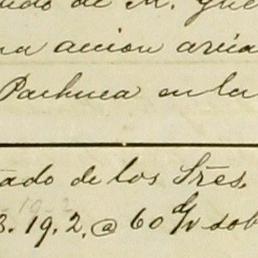 ado de M. Gue
na accion avia
Pachuca en la
ado de los Sres.
3. 19. 2. @ 60 d/v sob